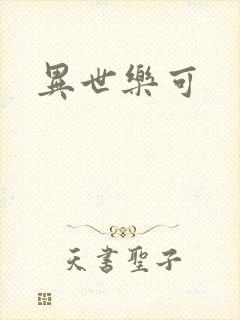 異世樂可
天書聖子